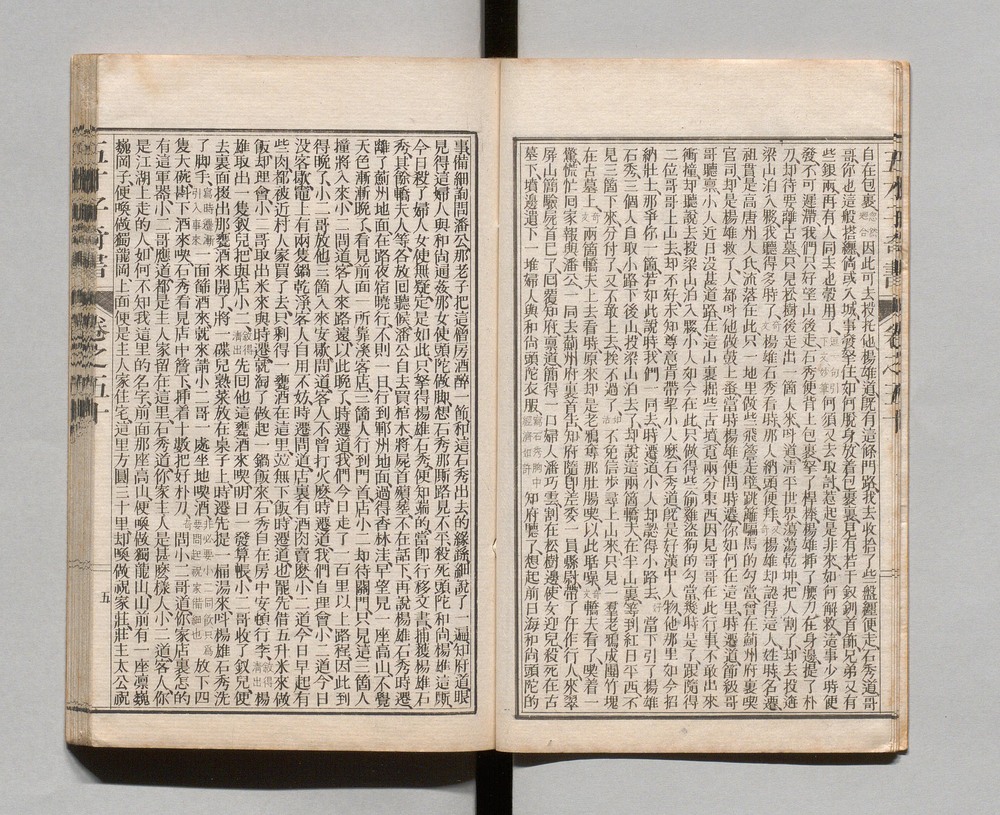 自在包裹因此可去投托他楊雄道既有這條門路我去收拾了些盤纏便走石秀道哥
哥你也這般搭纏倘或入城事發拏住如何脫身放着包裹裏見有若干釵釧首飾兄弟又有
些銀兩再有人同去也彀用了何須又去取討惹起是非來如何解救這事少時便
發不可遲滯我們只好望山後走石秀便背上包裹拏了桿棒楊雄插了腰刀在身邊提了朴
刀却待要離古墓只見松樹後走出一箇人來叫道清平世界蕩蕩乾坤把人割了却去投逩
梁山泊入夥我聽得多時了楊雄石秀看時那人納頭便拜楊雄却認得這人姓時名遷
祖貫是高唐州人氏流落在此只一地里做些飛簷走壁跳籬騙馬的勾當曾在薊州府裏喫
官司却是楊雄救了人都叫他做鼓上蚤當時楊雄便問時遷你如何在這里時遷道節級哥
哥聽禀小人近日没甚道路在這山裏掘些古墳覔兩分東西因見哥哥在此行事不敢出來
衝撞却聽說去投梁山泊入夥小人如今在此只做得些偷雞盜狗的勾當幾時是了跟隨得
二位哥哥上山去却不好未知尊意肯帶挈小人麽石秀道旣是好漢中人物他那里如今招
納壯士那爭你一箇若如此說時我們一同去時遷道小人却認得小路去當下引了楊雄
石秀三個人自取小路下後山投梁山泊去了却說這兩箇轎夫在半山裏等到紅日平西不
見三箇下來分付了又不敢上去挨不過了不免信步尋上山來只見一羣老鴉成團打塊
在古墓上兩箇轎夫上去看時原來却是老鴉奪那肚腸喫以此聒噪轎夫看了喫着一
驚慌忙囘家報與潘公一同去薊州府裏首告知府隨即差委一員縣尉帶了仵作行人來翠
屏山簡驗屍首已了囘覆知府禀道簡得一口婦人潘巧雲割在松樹邊使女迎兒殺死在古
墓下墳邊遺下一堆婦人與和尚頭陀衣服知府聽了想起前日海和尚頭陀的
事備細詢問潘公那老子把這僧房酒醉一節和這石秀出去的緣繇細說了一遍知府道眼
見得這婦人與和尚通姦那女使頭陀做脚想石秀那厮路見不平殺死頭陀和尚楊雄這厮
今日殺了婦人女使無疑定是如此只拏得楊雄石秀便知端的當即行移文書捕獲楊雄石
秀其餘轎夫人等各放回聽候潘公自去買棺木將屍首殯葬不在話下再說楊雄石秀時遷
離了薊州地面在路夜宿曉行不則一日行到鄆州地面過得香林洼早望見一座高山不覺
天色漸漸晚了看見前面一所靠溪客店三箇人行到門首店小二却待關門只見這三箇人
撞將入來小二問道客人來路遠以此晚了時遷道我們今日走了一百里以上路程因此到
得晚了小二哥放他三箇入來安歇問道客人不曾打火麽時遷道我們自理會小二道今日
没客歇竈上有兩隻鍋乾淨客人自用不妨時遷問道店裏有酒肉賣麽小二道今日早起有
些肉都被近村人家買了去只剩得一甕酒在這里竝無下飯時遷道也罷先借五升米來做
飯却理會小二哥取出米來與時遷就淘了做起一鍋飯來石秀自在房中安頓行李楊
雄取出一隻釵兒把與店小二先回他這甕酒來喫明日一發算帳小二哥收了釵兒便
去裏面掇出那甕酒來開了將一碟兒熟菜放在桌子上時遷先提一桶湯來叫楊雄石秀洗
了脚手一面篩酒來就來請小二哥一處坐地喫酒放下四
隻大碗斟下酒來喫石秀看見店中簷下插着十數把好朴刀問小二哥道你家店裏怎的
有這軍器小二哥應道都是主人家留在這里石秀道你家主人是甚麽樣人小二道客人你
是江湖上走的人如何不知我這里的名字前面那座高山便喚做獨龍山山前有一座凛巍
巍岡子便喚做獨龍岡上面便是主人家住宅這里方圓三十里却喚做祝家莊莊主太公祝
五